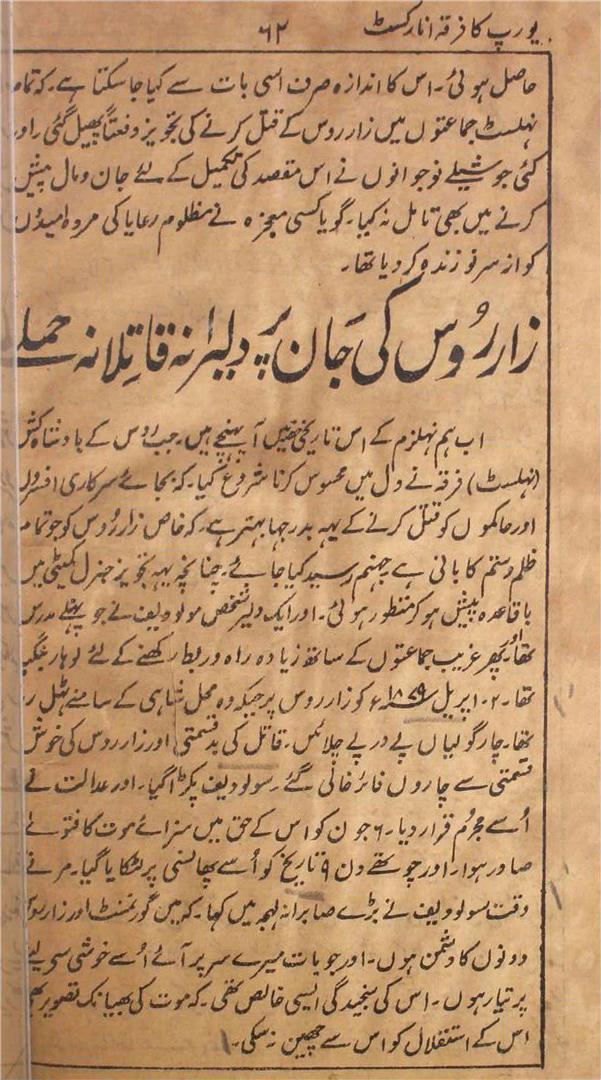 یورپ کا فرقہ انارکسٹ ۶۲
حاصل ہوئی۔ اس کا اندازہ صرف اسی بات سے کیا جاسکتا ہے۔ کہ تمام
نہلسٹ جماعتوں میں زار روس کے قتل کرنے کی تجویز دفعتاً پھیل گئی۔ اور
کئی جوشیلے نوجوانوں نے اس مقصد کی تکمیل کے لئے جان ومال پیش
کرنے میں بھی تامل نہ کیا۔ گویا کسی معجزہ نے مظلوم رعایا کی مردہ امیدوں
کو از سرنو زندہ کردیا تھا۔
زار رُوس کی جَان پر دلیرانہ قاتِلانہ حملے
اب ہم نہلزم کے اس تاریخی حصہ میں آپہنچے ہیں۔ جب روس کے بادشاہ کش
(نہلسٹ) فرقہ نے دل میں محسوس کرنا شروع کیا۔ کہ بجائے سرکاری افسروں
اور حاکموں کو قتل کرنے کے یہہ بدرجہا بہتر ہے۔ کہ خاص زار رُوس کو جو تمام
ظلم وستم کا بانی ہے جہنم رسید کیا جائے۔ چنانچہ یہہ تجویز جنرل کمیٹی میں
باقاعدہ پیش ہوکر منظور ہوئی۔ اور ایک دلیر شخص سولوویف نے جو پہلے مدرس
تھا اور پھر غریب جماعتوں کے ساتھ زیادہ راہ وربط رکھنے کے لئے لوہار بنگیا
تھا۔ ۲۔ اپریل ۱۸۷۹ء کو زار روس پر جبکہ وہ محل شاہی کے سامنے ٹہل ر
تھا۔ چار گولیاں پے در پے چلائیں۔ قاتل کی بدقسمتی اور زار روس کی خوش
قسمتی سے چاروں فائر خالی گئے۔ سولوویف پکڑا گیا۔ اور عدالت نے
اُسے مجرُم قرار دیا۔ ۶ جون کو اس کے حق میں سزائے موت کا فتوےٰ
صادر ہوا۔ اور چوتھے دن ۹ تاریخ کو اُسے پھانسی پر لٹکایا گیا۔ مرنے
وقت سولوویف نے بڑے صابرانہ لہجہ میں کہا۔ کہ میں گورنمنٹ اور زار
دونوں کا دشمن ہوں۔ اور جو بات میرے سر پر آئے اُسے خوشی سے
پر تیار ہوں۔ اس کی سنجیدگی ایسی خالص تھی۔ کہ موت کی بھیانک تصویر بھی
اس کے استقلال کو اس سے چھین نہ سکی۔